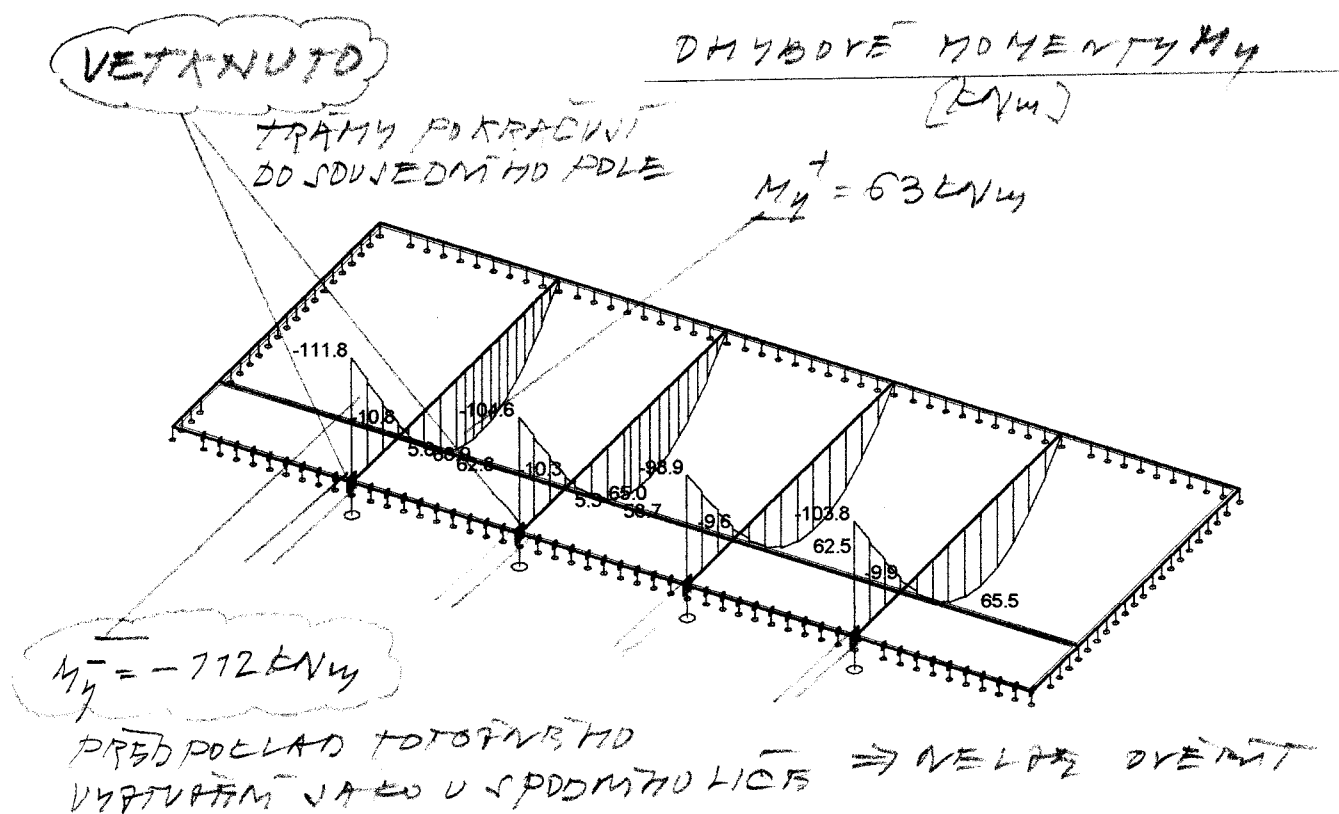 VETKNUTO
OHYBOVÉ MOMENTY My
[kNm]
TRÁMY POKRAČUJÍ
DO SOUSEDNÍHO POLE
My+ = 63 kNm
-111.8
-10.8
-104.6
5.8
62.8
-10.3
-98.9
5.3
65.0
58.7
-9.6
-103.8
62.5
-9.9
65.5
My- = -112 kNm
PŘEDPOKLAD TOTOŽNÉHO
VYZTUŽENÍ JAKO U SPODNÍHO LÍCE ⇒ NELZE OVĚŘIT